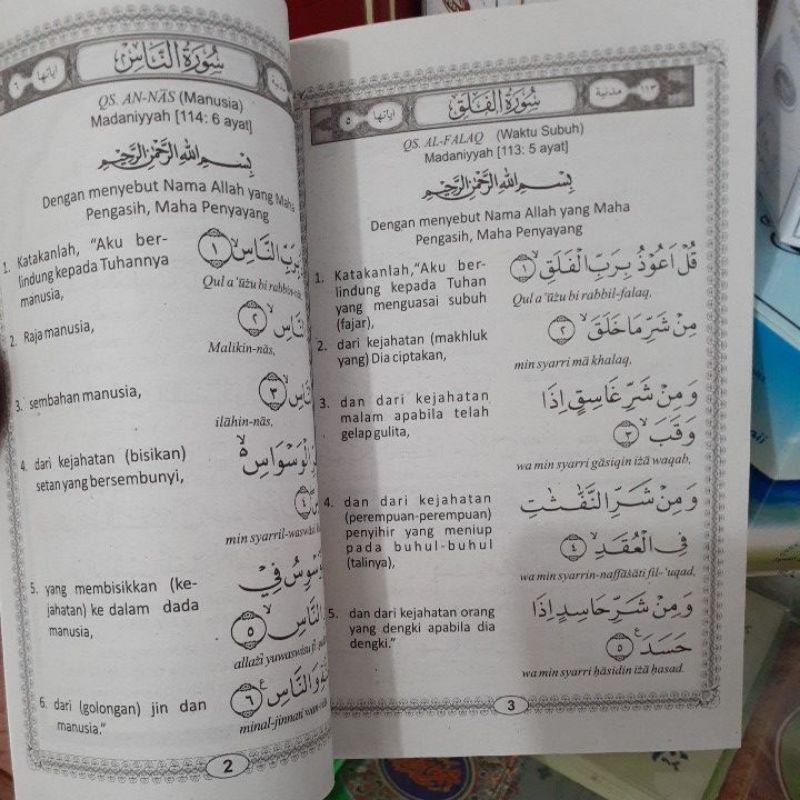 ٦ اياتها سورة الناس مدنية
QS. AN-NĀS (Manusia)
Madaniyyah [114: 6 ayat]
بِسْمِ اللهِ الرَّحْمٰنِ الرَّحِيْمِ
Dengan menyebut Nama Allah yang Maha
Pengasih, Maha Penyayang
1. Katakanlah, "Aku ber-
lindung kepada Tuhannya
manusia,
بِرَبِّ النَّاسِۙ ١
Qul a'ūżu bi rabbin-
2. Raja manusia,
النَّاسِۙ ٢
Malikin-nās,
3. sembahan manusia,
النَّاسِۙ ٣
ilāhin-nās,
4. dari kejahatan (bisikan)
setan yang bersembunyi,
الْوَسْوَاسِ
٤
min syarril-waswās
5. yang membisikkan (ke-
jahatan) ke dalam dada
manusia,
يُوَسْوِسُ فِيْ
النَّاسِۙ ٥
allażī yuwaswisu
6. dari (golongan) jin dan
manusia."
وَالنَّاسِ ࣖ ٦
minal-jinnati
2
٥ اياتها سورة الفلق مدنية ١١٣
QS. AL-FALAQ (Waktu Subuh)
Madaniyyah [113: 5 ayat]
بِسْمِ اللهِ الرَّحْمٰنِ الرَّحِيْمِ
Dengan menyebut Nama Allah yang Maha
Pengasih, Maha Penyayang
1. Katakanlah,"Aku ber-
lindung kepada Tuhan
yang menguasai subuh
(fajar),
قُلْ اَعُوْذُ بِرَبِّ الْفَلَقِۙ ١
Qul a'ūżu bi rabbil-falaq,
2. dari kejahatan (makhluk
yang) Dia ciptakan,
مِنْ شَرِّ مَا خَلَقَۙ ٢
min syarri mā khalaq,
3. dan dari kejahatan
malam apabila telah
gelap gulita,
وَمِنْ شَرِّ غَاسِقٍ اِذَا
وَقَبَۙ ٣
wa min syarri gāsiqin iżā waqab,
4. dan dari kejahatan
(perempuan-perempuan)
penyihir yang meniup
pada buhul-buhul
(talinya),
وَمِنْ شَرِّ النَّفّٰثٰتِ
فِى الْعُقَدِۙ ٤
wa min syarrin-naffāṡāti fil-'uqad,
5. dan dari kejahatan orang
yang dengki apabila dia
dengki."
وَمِنْ شَرِّ حَاسِدٍ اِذَا
حَسَدَ ࣖ ٥
wa min syarri ḥāsidin iżā ḥasad.
3